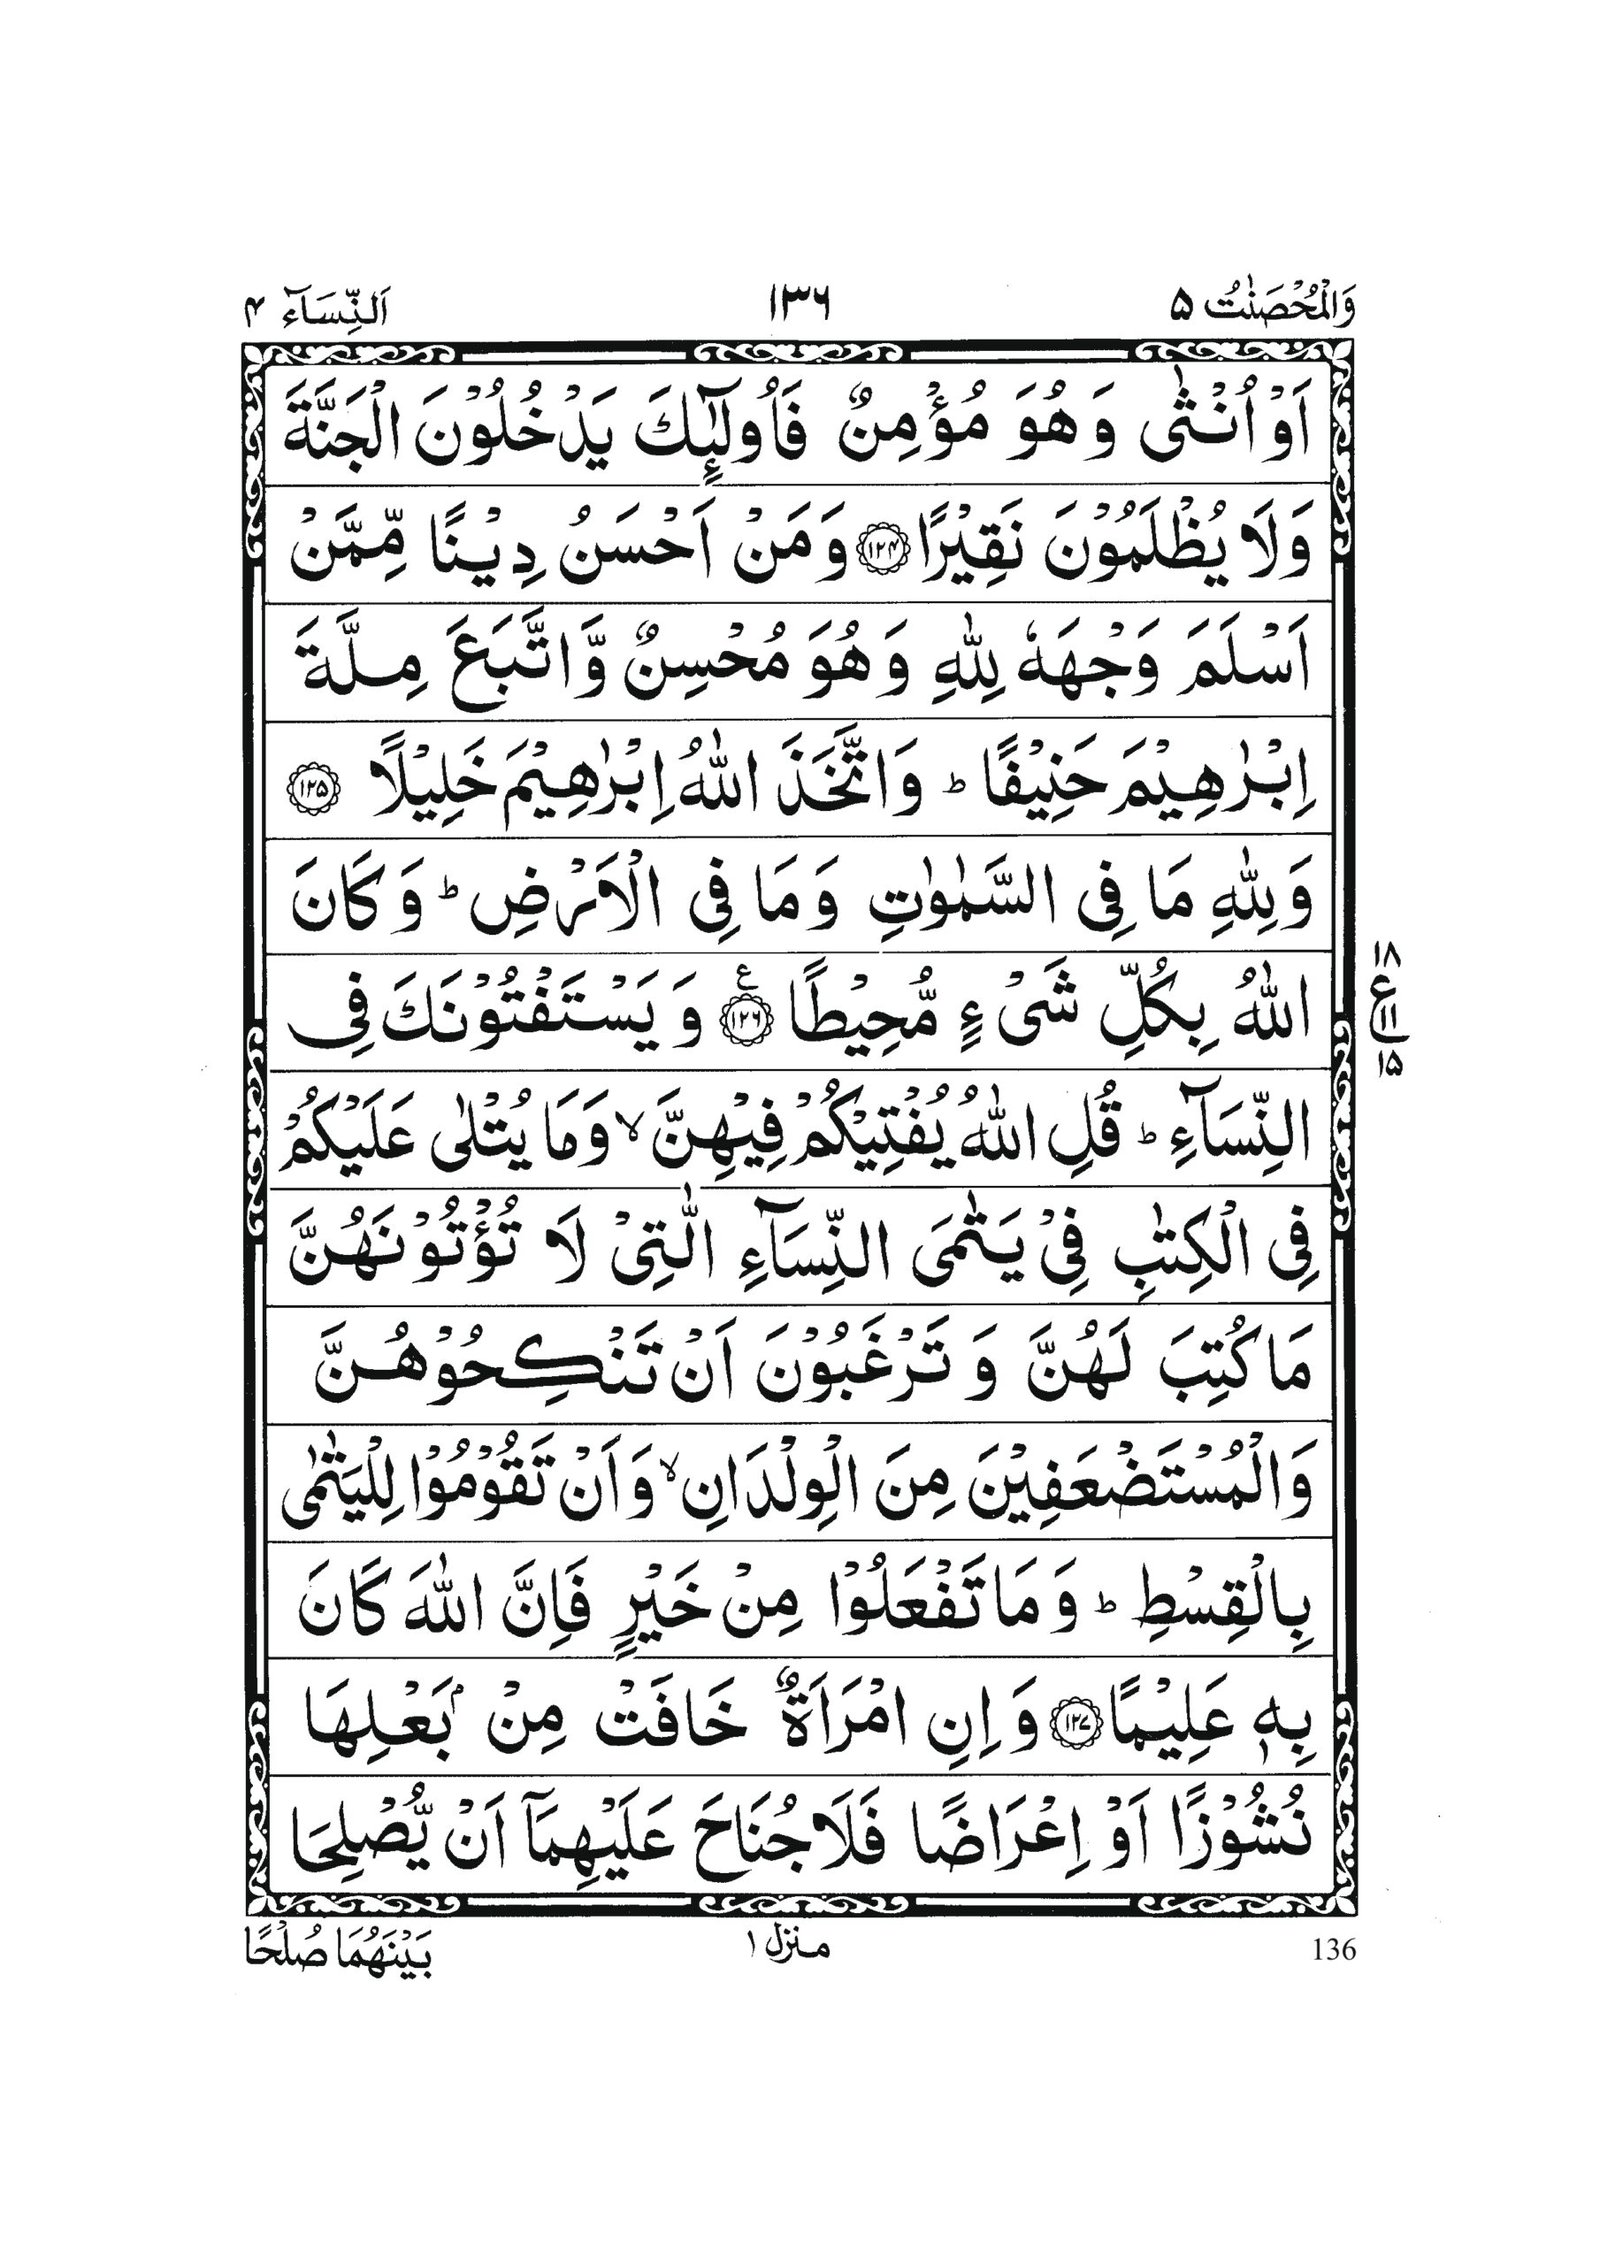 وَالْمُحْصَنٰتُ ۵ ۱۳۶ اَلنِّسَآء ۴
اَوْ اُنْثٰى وَ هُوَ مُؤْمِنٌ فَاُولٰٓئِكَ يَدْخُلُوْنَ الْجَنَّةَ
وَلَا يُظْلَمُوْنَ نَقِيْرًا ۝۱۲۴ وَ مَنْ اَحْسَنُ دِيْنًا مِّمَّنْ
اَسْلَمَ وَجْهَهٗ لِلّٰهِ وَ هُوَ مُحْسِنٌ وَّاتَّبَعَ مِلَّةَ
اِبْرٰهِيْمَ حَنِيْفًا ؕ وَاتَّخَذَ اللّٰهُ اِبْرٰهِيْمَ خَلِيْلًا ۝۱۲۵
وَلِلّٰهِ مَا فِى السَّمٰوٰتِ وَ مَا فِى الْاَرْضِ ؕ وَ كَانَ
اللّٰهُ بِكُلِّ شَىْءٍ مُّحِيْطًا ۝۱۲۶ۧ وَ يَسْتَفْتُوْنَكَ فِى
۱۸
ع
۱۱
۱۵
النِّسَآءِ ؕ قُلِ اللّٰهُ يُفْتِيْكُمْ فِيْهِنَّ ۙ وَمَا يُتْلٰى عَلَيْكُمْ
فِى الْكِتٰبِ فِىْ يَتٰمَى النِّسَآءِ الّٰتِىْ لَا تُؤْتُوْنَهُنَّ
مَا كُتِبَ لَهُنَّ وَ تَرْغَبُوْنَ اَنْ تَنْكِحُوْهُنَّ
وَالْمُسْتَضْعَفِيْنَ مِنَ الْوِلْدَانِ ۙ وَاَنْ تَقُوْمُوْا لِلْيَتٰمٰى
بِالْقِسْطِ ؕ وَ مَا تَفْعَلُوْا مِنْ خَيْرٍ فَاِنَّ اللّٰهَ كَانَ
بِهٖ عَلِيْمًا ۝۱۲۷ وَ اِنِ امْرَاَةٌ خَافَتْ مِنْۢ بَعْلِهَا
نُشُوْزًا اَوْ اِعْرَاضًا فَلَا جُنَاحَ عَلَيْهِمَآ اَنْ يُّصْلِحَا
بَيْنَهُمَا صُلْحًا منزل ۱ 136